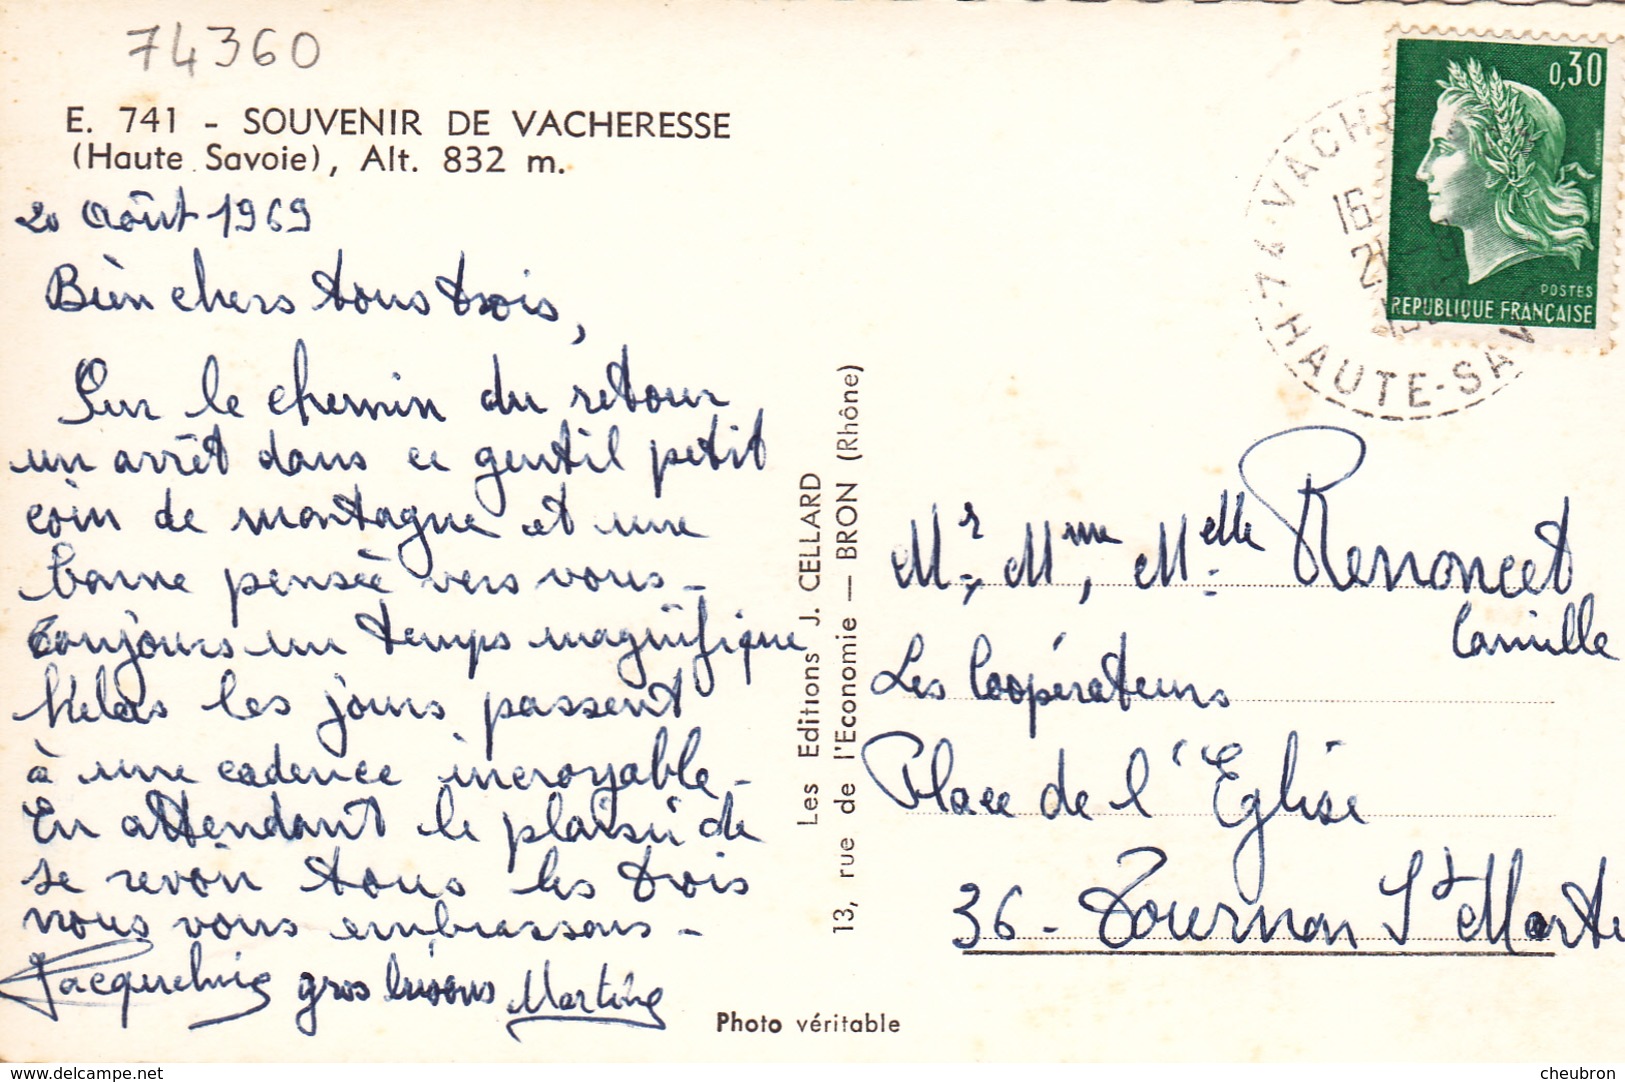 74360
E. 741 - SOUVENIR DE VACHERESSE
(Haute Savoie), Alt. 832 m.
20 Août 1969
Bien chers tous trois,
Sur le chemin du retour
un arrêt dans ce gentil petit
coin de montagne et une
bonne pensée vers vous -
Toujours un temps magnifique
Helas les jours passent
à une cadence incroyable -
En attendant le plaisir de
se revoir tous les trois
nous vous embrassons -
Jacqueline gros bisous Martine
Photo véritable
Les Editions J. CELLARD
13, rue de l'Economie — BRON (Rhône)
0,30
POSTES
REPUBLIQUE FRANÇAISE
74 - VACH
HAUTE-SAV
16
Mr, Mme, Melle Renoncet
Camille
Les Coopérateurs
Place de l'Eglise
36 - Tournon St Martin
delcampe.net
cheubron